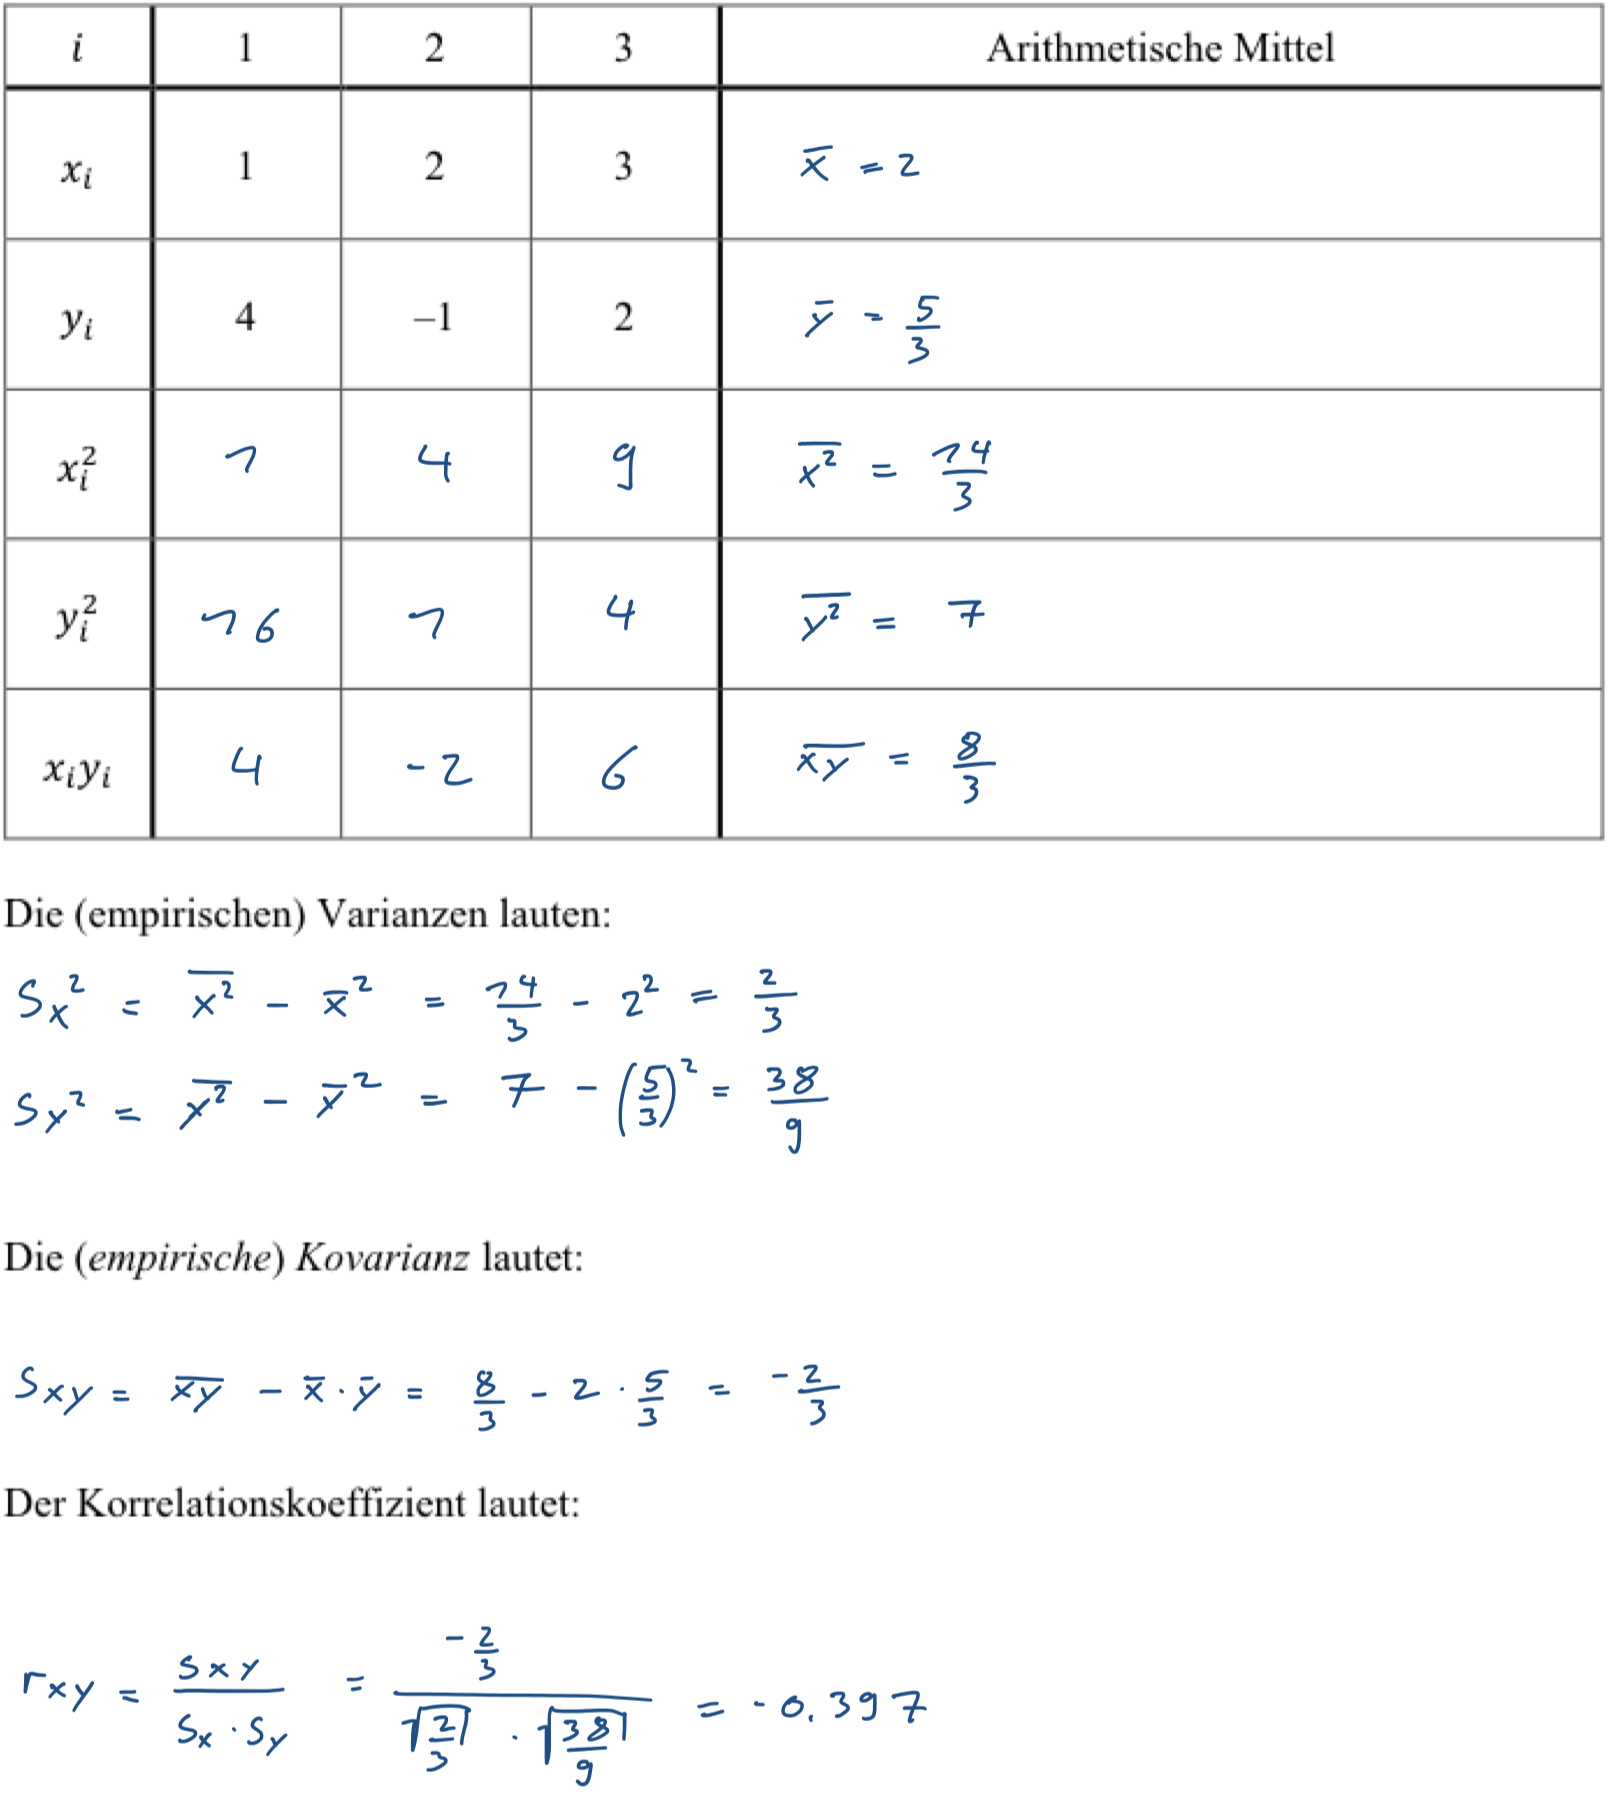 i 1 2 3 Arithmetische Mittel
xᵢ 1 2 3 x̅ = 2
yᵢ 4 –1 2 y̅ = 5/3
xᵢ² 1 4 9 x²̅ = 14/3
yᵢ² 16 1 4 y²̅ = 7
xᵢyᵢ 4 -2 6 x̅y̅ = 8/3
Die (empirischen) Varianzen lauten:
Sx² = x²̅ - x̅² = 14/3 - 2² = 2/3
Sy² = y²̅ - y̅² = 7 - (5/3)² = 38/9
Die (empirische) Kovarianz lautet:
Sxy = x̅y̅ - x̅ · y̅ = 8/3 - 2 · 5/3 = -2/3
Der Korrelationskoeffizient lautet:
rxy = Sxy/(Sx · Sy) = (-2/3)/(√(2/3) · √(38/9)) = -0.397